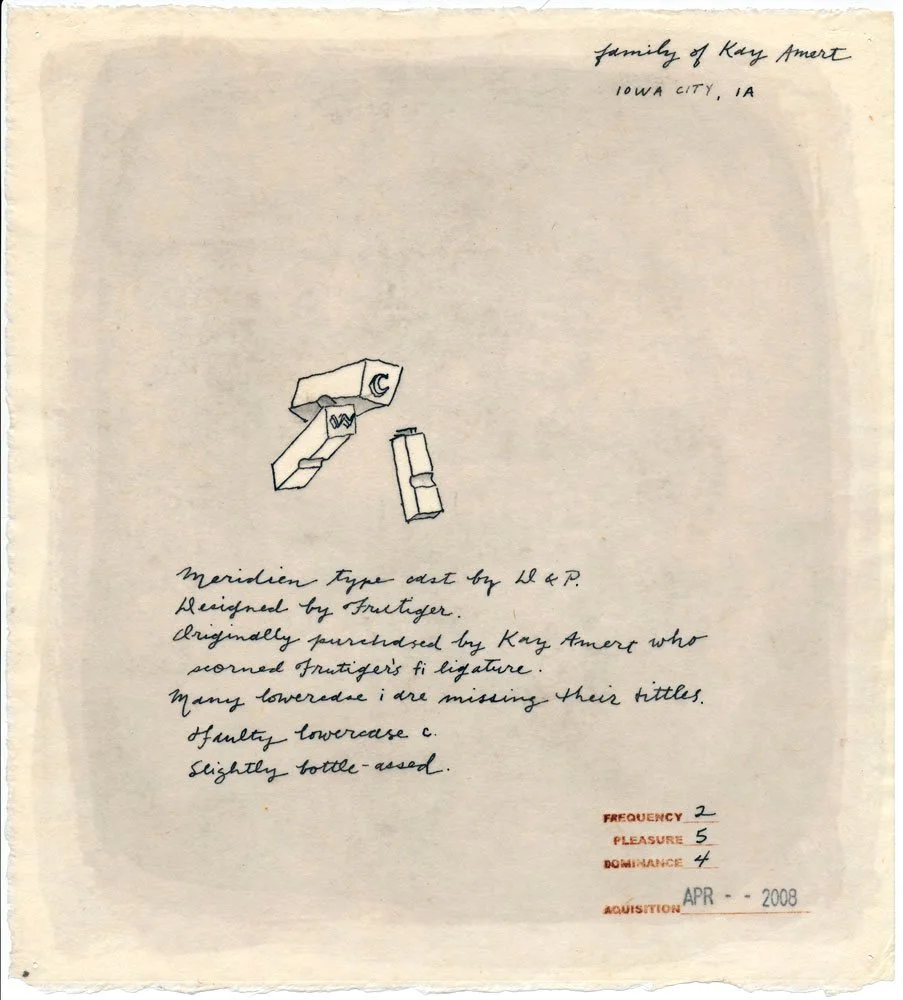 family of Kay Amert
IOWA CITY, IA
C
W
Meridien type cast by D & P.
Designed by Frutiger.
Originally purchased by Kay Amert who
scorned Frutiger's fi ligature.
Many lowercase i are missing their tittles.
Faulty lowercase c.
Slightly bottle-assed.
FREQUENCY 2
PLEASURE 5
DOMINANCE 4
AQUISITION APR - - 2008